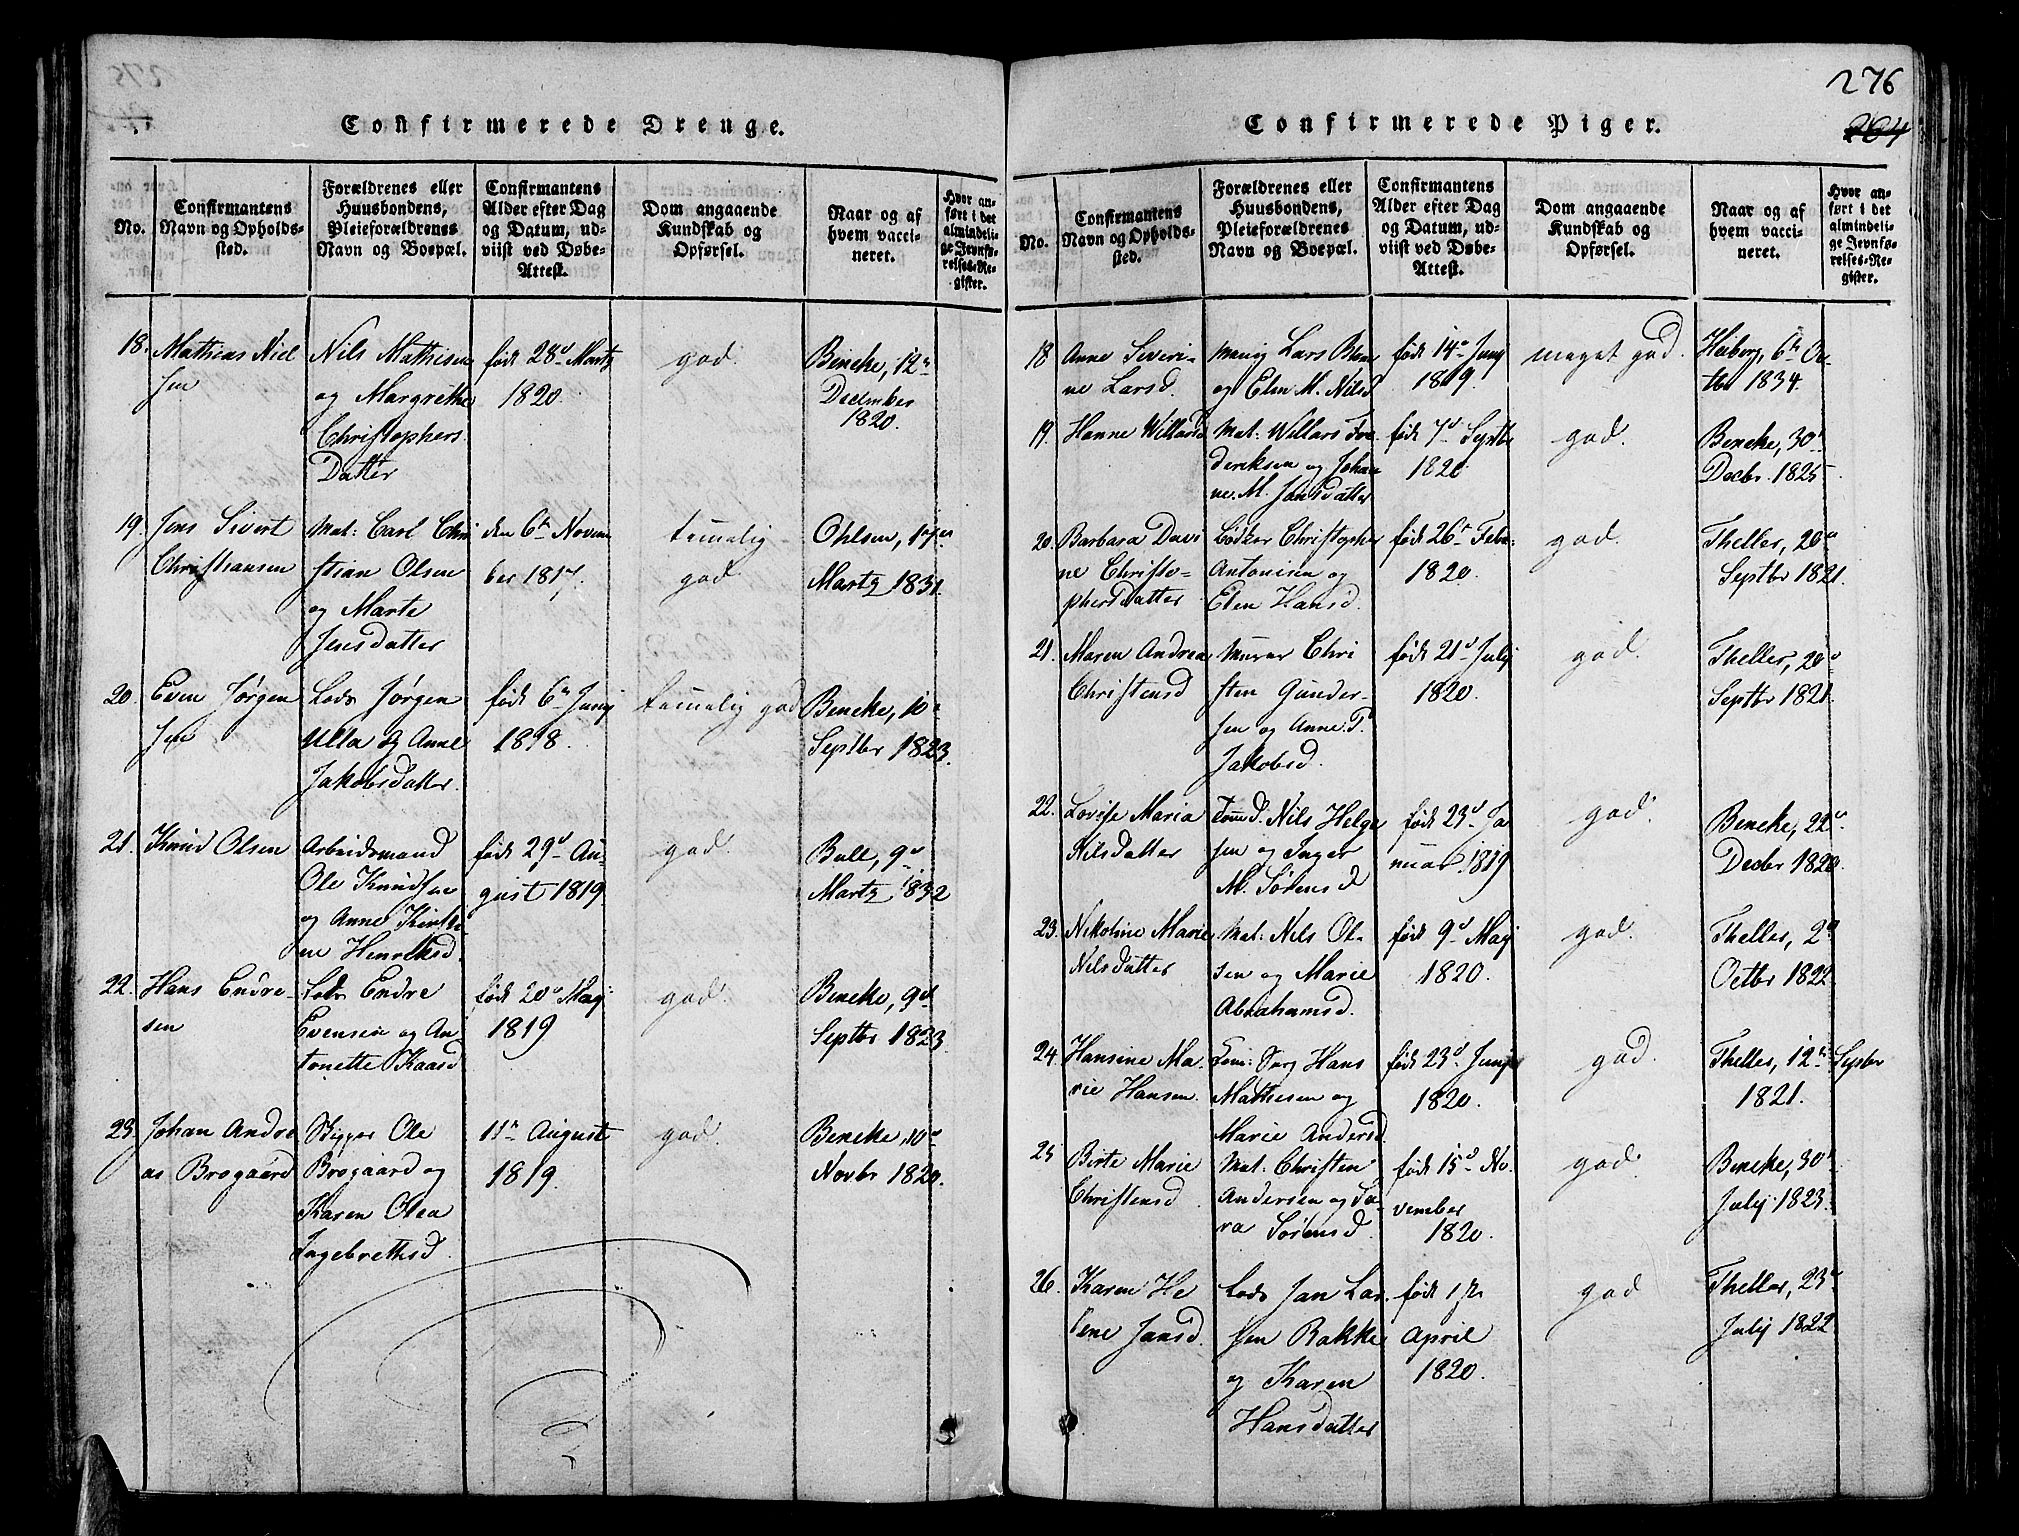 276
264
Confirmerede Drenge.
No.
Confirmantens
Navn og Opholds-
sted.
Forældrenes eller
Huusbondens,
Pleieforældrenes
Navn og Boepæl.
Confirmantens
Alder efter Dag
og Datum, ud-
viist ved Døbe-
Attest.
Dom angaaende
Kundskab og
Opførsel.
Naar og af
hvem vacci-
neret.
Hvor an-
ført i det
almindeli-
ge Jevnfø-
relses-Re-
gister.
18. Mathias Niel
sen
Nils Mathisen
og Margrethe
Christophers
Datter
født 28d Martz
1820.
god.
Beneke, 12te
December
1820.
19. Jens Sivert
Christiansen
Mat: Carl Chri
stian Olsen
og Marte
Jensdatter
den 6te Novem
ber 1817.
temmelig
god
Ohlsen, 17de
Martz 1831.
20. Even Jørgen
sen
Lods Jørgen
Ulla og Anne
Jakobsdatter
født 6te Junij
1818.
temelig god
Beneke, 10de
Septbr 1823.
21. Knud Olsen
Arbeidsmand
Ole Knudsen
og Anne Kirsti
ne Henriksd.
født 29d Au-
gust 1819
god.
Bull, 9de
Martz 1832
22. Hans Endre-
sen
Lods Endre
Evensen og An
tonette Kaasd
født 20d Maij
1819
god.
Beneke, 9de
Septbr 1823.
23. Johan Andre
as Brogaard
Skipper Ole
Brogaard og
Karen Olea
Ingebrethsd.
11te August
1819.
god.
Beneke, 10de
Novbr 1820.
Confirmerede Piger.
No.
Confirmantens
Navn og Opholds-
sted.
Forældrenes eller
Huusbondens,
Pleieforældrenes
Navn og Boepæl.
Confirmantens
Alder efter Dag
og Datum, ud-
viist ved Døbe-
Attest.
Dom angaaende
Kundskab og
Opførsel.
Naar og af
hvem vacci-
neret.
Hvor an-
ført i det
almindeli-
ge Jevnfø-
relses-Re-
gister.
18 Anne Severi-
ne Larsd.
Lars
og Elen M. Nilsd
født 14de Junij
1819.
meget god.
Heiberg, 6te Oc-
tbr 1834.
19. Hanne Willarsd
Mat: Willars Fre-
deriksen og Johan
ne M. Jansdatter
født 7d Septbr
1820
god.
Beneke, 30te
Decbr. 1825
20. Barbara Davi
ne Christo-
phersdatter
Bødker Christopher
Antonisen og
Elen Hansd.
født 26te Febr:
1820.
god.
Theller, 20de
Septbr 1821.
21. Maren Andrea
Christensd
Murer Chri
sten Gunder-
sen og Anne T.
Jakobsd.
født 21d Julij
1820.
god.
Theller, 20d
Septbr 1821.
22. Lovise Maria
Nilsdatter
Tømd. Nils Helge
sen og Inger
M. Sørensd
født 23d Ja
nuar 1819
god.
Beneke, 22de
Decbr 1820.
23. Nikoline Marie
Nilsdatter
Mat: Nils Ol-
sen og Marie
Abrahamsd.
født 9d Maij
1820.
god.
Theller, 2d
Octbr 1822
24. Hansine Ma
rie Hansen.
Hans
Mathiesen og
Marie Andersd.
født 23d Junij
1820.
god.
Theller, 12te Septbr
1821.
25 Birte Marie
Christensd.
Mat: Christen
Andersen og Sa-
ra Sørensd.
født 15d No.
vember
1820.
god.
Beneke, 30te
Julij 1823.
26. Karen He
lene Jansd.
Lods Jan Lar
sen Bakke
og Karen
Hansdatter
født 1ste
April
1820.
god
Theller, 23de
Julij 1822